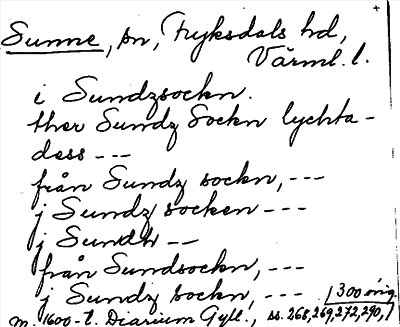 Sunne, sn, Fryksdals hd,
Värml. l.
i Sundzsockn.
ther Sundz Sockn lychta-
dess ---
från Sundz sockn, ---
j Sundz socken ---
j Sundh --
från Sundsockn, ---
j Sundz sockn, --- 300 örig.
m. 1600-t. Diarium Gyll., ss. 268, 269, 272, 290,